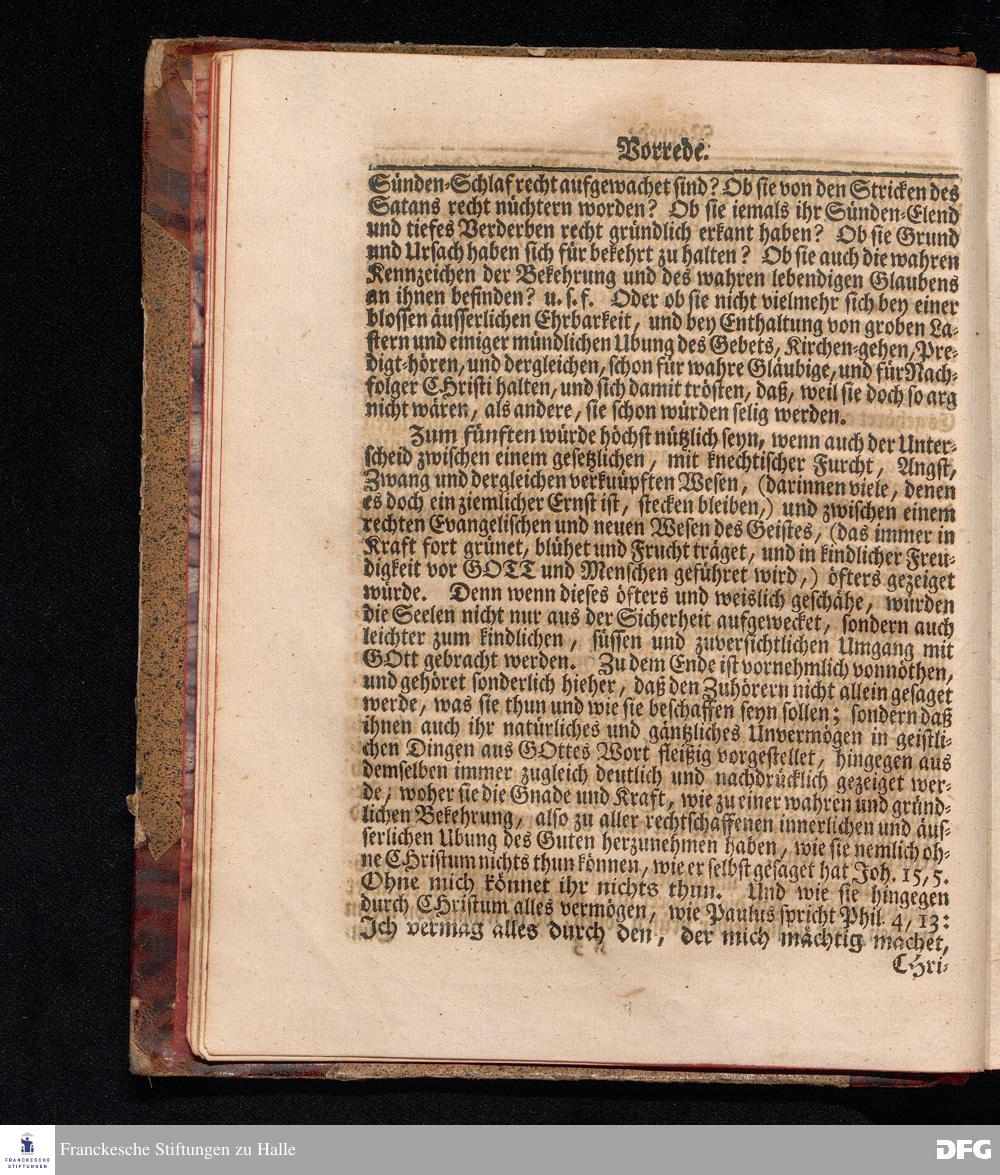 Vorrede.
Sünden-Schlaf recht aufgewachet sind? Ob sie von den Stricken des
Satans recht nüchtern worden? Ob sie iemals ihr Sünden-Elend
und tiefes Verderben recht gründlich erkant haben? Ob sie Grund
und Ursach haben sich für bekehrt zu halten? Ob sie auch die wahren
Kennzeichen der Bekehrung und des wahren lebendigen Glaubens
an ihnen befinden? u. s. f. Oder ob sie nicht vielmehr sich bey einer
blossen äusserlichen Ehrbarkeit, und bey Enthaltung von groben La-
stern und einiger mündlichen Ubung des Gebets, Kirchen-gehen, Pre-
digt-hören, und dergleichen, schon für wahre Gläubige, und für Nach-
folger CHristi halten, und sich damit trösten, daß, weil sie doch so arg
nicht wären, als andere, sie schon würden selig werden.
Zum fünften würde höchst nützlich seyn, wenn auch der Unter-
scheid zwischen einem gesetzlichen, mit knechtischer Furcht, Angst,
Zwang und dergleichen verkuüpften Wesen, (darinnen viele, denen
es doch ein ziemlicher Ernst ist, stecken bleiben,) und zwischen einem
rechten Evangelischen und neuen Wesen des Geistes, (das immer in
Kraft fort grünet, blühet und Frucht träget, und in kindlicher Freu-
digkeit vor GOTT und Menschen geführet wird,) öfters gezeiget
würde. Denn wenn dieses öfters und weislich geschähe, würden
die Seelen nicht nur aus der Sicherheit aufgewecket, sondern auch
leichter zum kindlichen, süssen und zuversichtlichen Umgang mit
GOtt gebracht werden. Zu dem Ende ist vornehmlich vonnöthen,
und gehöret sonderlich hieher, daß den Zuhörern nicht allein gesaget
werde, was sie thun und wie sie beschaffen seyn sollen; sondern daß
ihnen auch ihr natürliches und gäntzliches Unvermögen in geistli-
chen Dingen aus GOttes Wort fleißig vorgestellet, hingegen aus
demselben immer zugleich deutlich und nachdrücklich gezeiget wer-
de, woher sie die Gnade und Kraft, wie zu einer wahren und gründ-
lichen Bekehrung, also zu aller rechtschaffenen innerlichen und äus-
serlichen Ubung des Guten herzunehmen haben, wie sie nemlich oh-
ne CHristum nichts thun können, wie er selbst gesaget hat Joh. 15, 5.
Ohne mich könnet ihr nichts thun. Und wie sie hingegen
durch CHristum alles vermögen, wie Paulus spricht Phil. 4, 13:
Ich vermag alles durch den, der mich mächtig machet,
CHri-
FRANCKESCHE
STIFTUNGEN
Franckesche Stiftungen zu Halle
DFG